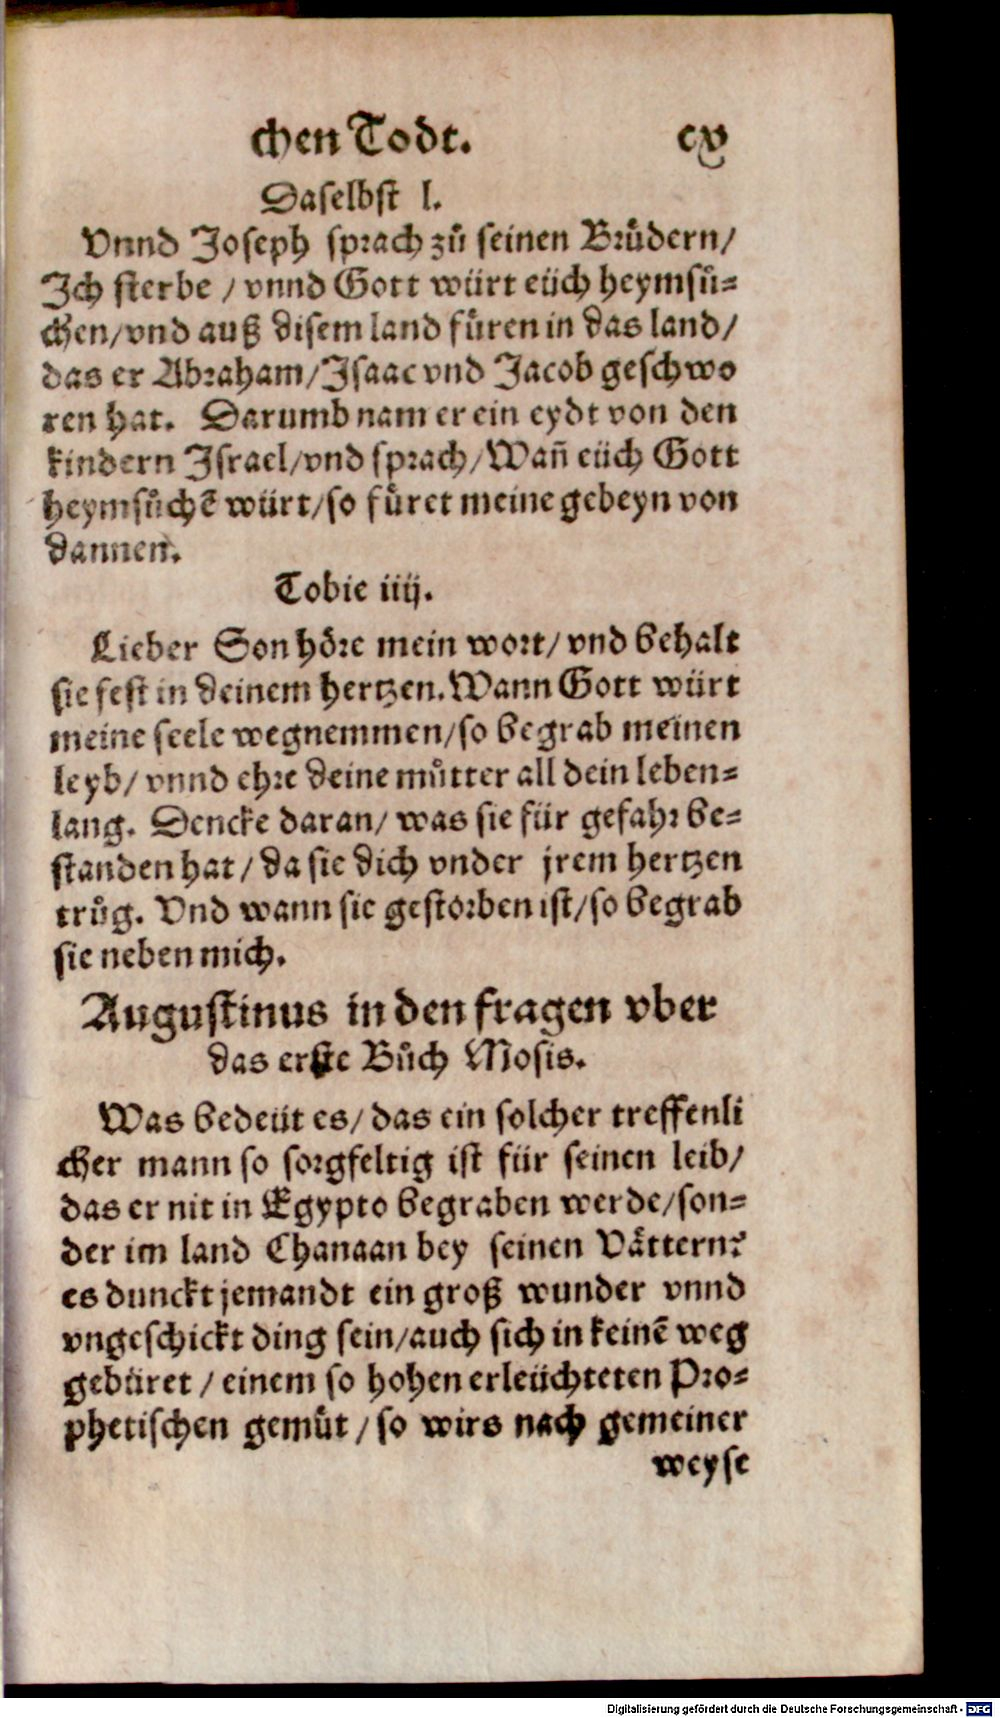 chen Todt. cv
Daselbst l.
Vnnd Joseph sprach zů seinen Brůdern/
Ich sterbe / vnnd Gott würt eüch heymsů-
chen/vnd auß disem land fůren in das land/
das er Abraham/Isaac vnd Jacob geschwo
ren hat. Darumb nam er ein eydt von den
kindern Israel/vnd sprach/Wañ eüch Gott
heymsůchē würt/so fůret meine gebeyn von
dannen.
Tobie iiij.
Lieber Son höre mein wort/ vnd behalt
sie fest in deinem hertzen. Wann Gott würt
meine seele wegnemmen/so begrab meinen
leyb/ vnnd ehre deine můtter all dein leben-
lang. Dencke daran/ was sie für gefahr be-
standen hat/ da sie dich vnder jrem hertzen
trůg. Vnd wann sie gestorben ist/so begrab
sie neben mich.
Augustinus in den fragen vber
das erste Bůch Mosis.
Was bedeüt es/ das ein solcher treffenli
cher mann so sorgfeltig ist für seinen leib/
das er nit in Egypto begraben werde/son-
der im land Chanaan bey seinen Vättern?
es dunckt jemandt ein groß wunder vnnd
vngeschickt ding sein/auch sich in keinē weg
gebüret / einem so hohen erleüchteten Pro-
phetischen gemůt / so wirs nach gemeiner
weyse
Digitalisierung gefördert durch die Deutsche Forschungsgemeinschaft - DFG